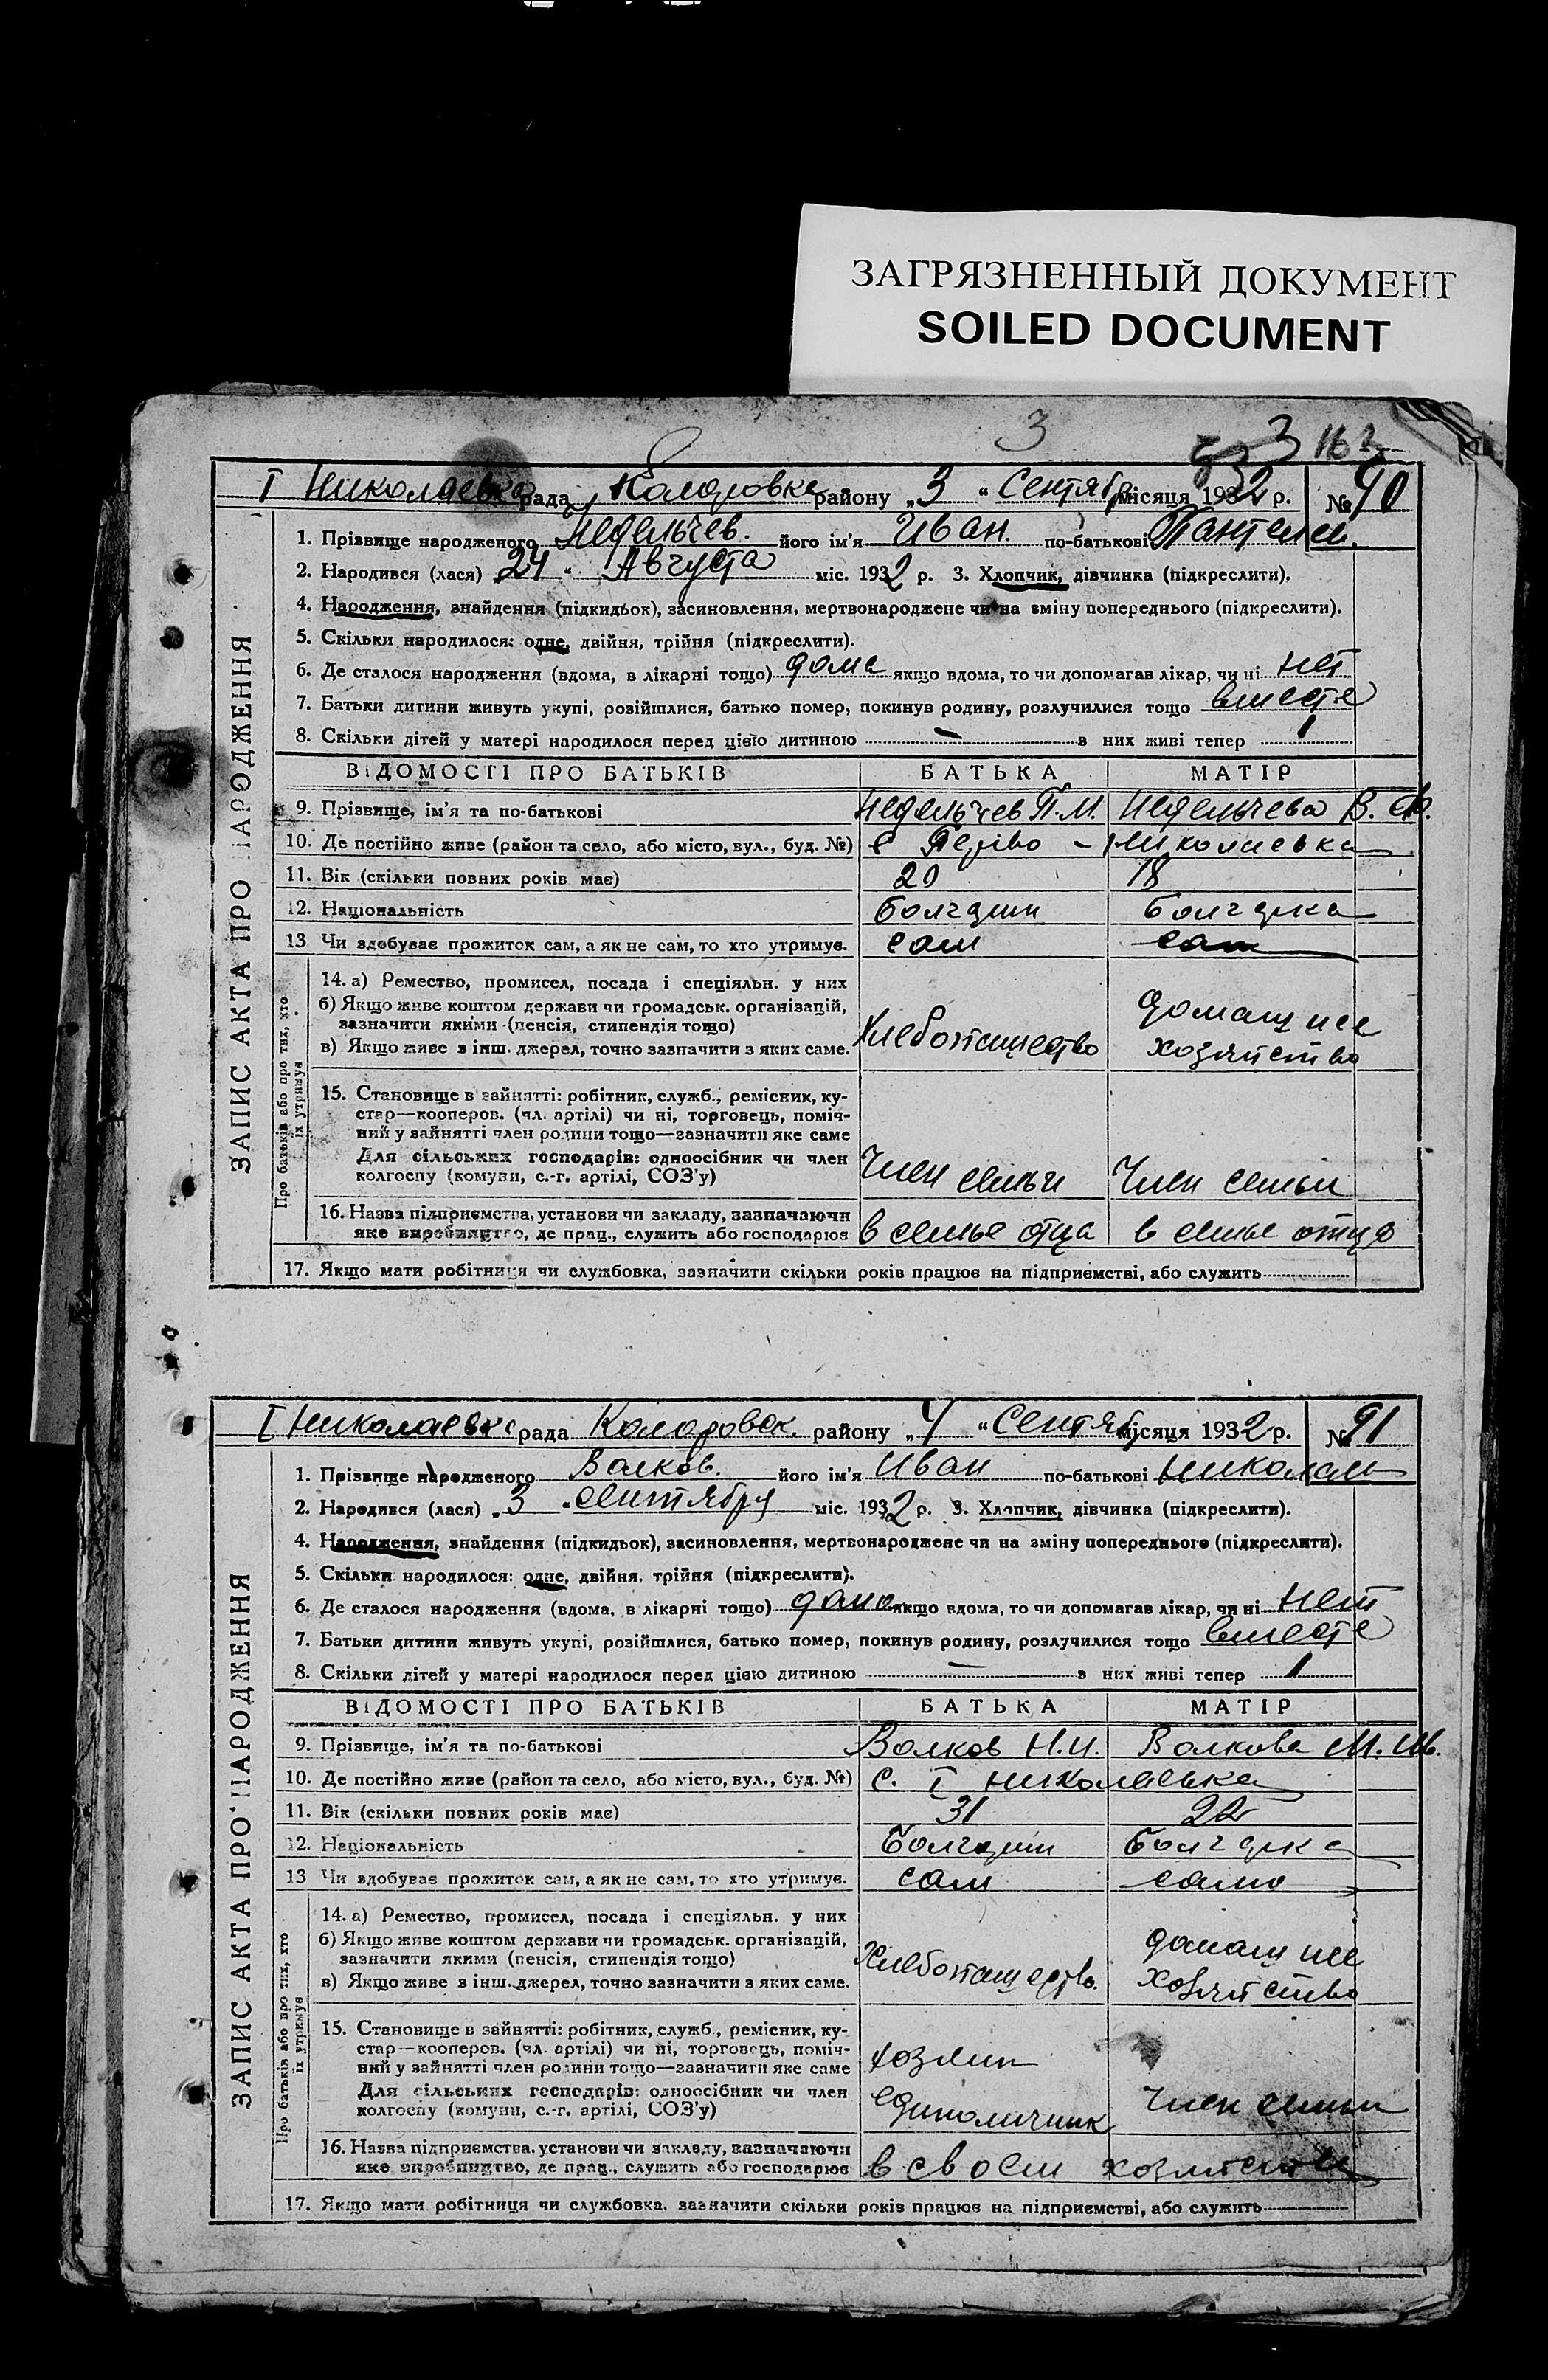 ЗАГРЯЗНЕННЫЙ ДОКУМЕНТ
SOILED DOCUMENT
3
3 163
І Николаевка рада Коларовка району „3“ Сентябр місяця 1932 р. № 90
ЗАПИС АКТА ПРО НАРОДЖЕННЯ
1. Прізвище народженого Недельчев. його ім'я Иван. по-батькові Пантелеи.
2. Народився (лася) „24“ Августа міс. 1932 р. 3. Хлопчик, дівчинка (підкреслити).
4. Народження, знайдення (підкидьок), засиновлення, мертвонароджене чи на зміну попереднього (підкреслити).
5. Скільки народилося: одне, двійня, трійня (підкреслити).
6. Де сталося народження (вдома, в лікарні тощо) дома якщо вдома, то чи допомагав лікар, чи ні нет
7. Батьки дитини живуть укупі, розійшлися, батько помер, покинув родину, розлучилися тощо вместе
8. Скільки дітей у матері народилося перед цією дитиною — з них живі тепер 1
ВІДОМОСТІ ПРО БАТЬКІВ БАТЬКА МАТІР
9. Прізвище, ім'я та по-батькові Недельчев П.М. Недельчева В. Ф.
10. Де постійно живе (район та село, або місто, вул., буд. №) с Перво - Николаевка
11. Вік (скільки повних років має) 20 18
12. Національність болгарин болгарка
13 Чи здобуває прожиток сам, а як не сам, то хто утримує. сам сам
Про батьків або про тих, хто їх утримує
14. а) Ремество, промисел, посада і спеціяльн. у них
б) Якщо живе коштом держави чи громадськ. організацій,
зазначити якими (пенсія, стипендія тощо)
в) Якщо живе з інш. джерел, точно зазначити з яких саме.
Хлебопашество домашнее
хозяйство
15. Становище в зайнятті: робітник, служб., ремісник, ку-
стар—кооперов. (чл. артілі) чи ні, торговець, поміч-
ний у зайнятті член родини тощо—зазначити яке саме
Для сільських господарів: одноосібник чи член
колгоспу (комуни, с.-г. артілі, СОЗ'у)
Член семьи Член семьи
16. Назва підприємства, установи чи закладу, зазначаючи
яке виробництво, де прац., служить або господарює в семье отца в семье отца
17. Якщо мати робітниця чи службовка, зазначити скільки років працює на підприємстві, або служить
І Николаевка рада Коларовск. району „4“ Сентяб місяця 1932 р. № 91
ЗАПИС АКТА ПРО НАРОДЖЕННЯ
1. Прізвище народженого Волков. його ім'я Иван по-батькові Николаев
2. Народився (лася) „3“ сентября міс. 1932 р. 3. Хлопчик, дівчинка (підкреслити).
4. Народження, знайдення (підкидьок), засиновлення, мертвонароджене чи на зміну попереднього (підкреслити).
5. Скільки народилося: одне, двійня, трійня (підкреслити).
6. Де сталося народження (вдома, в лікарні тощо) дома якщо вдома, то чи допомагав лікар, чи ні нет
7. Батьки дитини живуть укупі, розійшлися, батько помер, покинув родину, розлучилися тощо вместе
8. Скільки дітей у матері народилося перед цією дитиною — з них живі тепер 1
ВІДОМОСТІ ПРО БАТЬКІВ БАТЬКА МАТІР
9. Прізвище, ім'я та по-батькові Волков Н.И. Волкова М. Ив.
10. Де постійно живе (район та село, або місто, вул., буд. №) с. І Николаевка
11. Вік (скільки повних років має) 31 22
12. Національність Болгарин болгарка
13 Чи здобуває прожиток сам, а як не сам, то хто утримує. сам сама
Про батьків або про тих, хто їх утримує
14. а) Ремество, промисел, посада і спеціяльн. у них
б) Якщо живе коштом держави чи громадськ. організацій,
зазначити якими (пенсія, стипендія тощо)
в) Якщо живе з інш. джерел, точно зазначити з яких саме.
Хлебопашество. домашнее
хозяйство
15. Становище в зайнятті: робітник, служб., ремісник, ку-
стар—кооперов. (чл. артілі) чи ні, торговець, поміч-
ний у зайнятті член родини тощо—зазначити яке саме
Для сільських господарів: одноосібник чи член
колгоспу (комуни, с.-г. артілі, СОЗ'у)
хозяин
единоличник Член семьи
16. Назва підприємства, установи чи закладу, зазначаючи
яке виробництво, де прац., служить або господарює в своем хозяйстве
17. Якщо мати робітниця чи службовка, зазначити скільки років працює на підприємстві, або служить